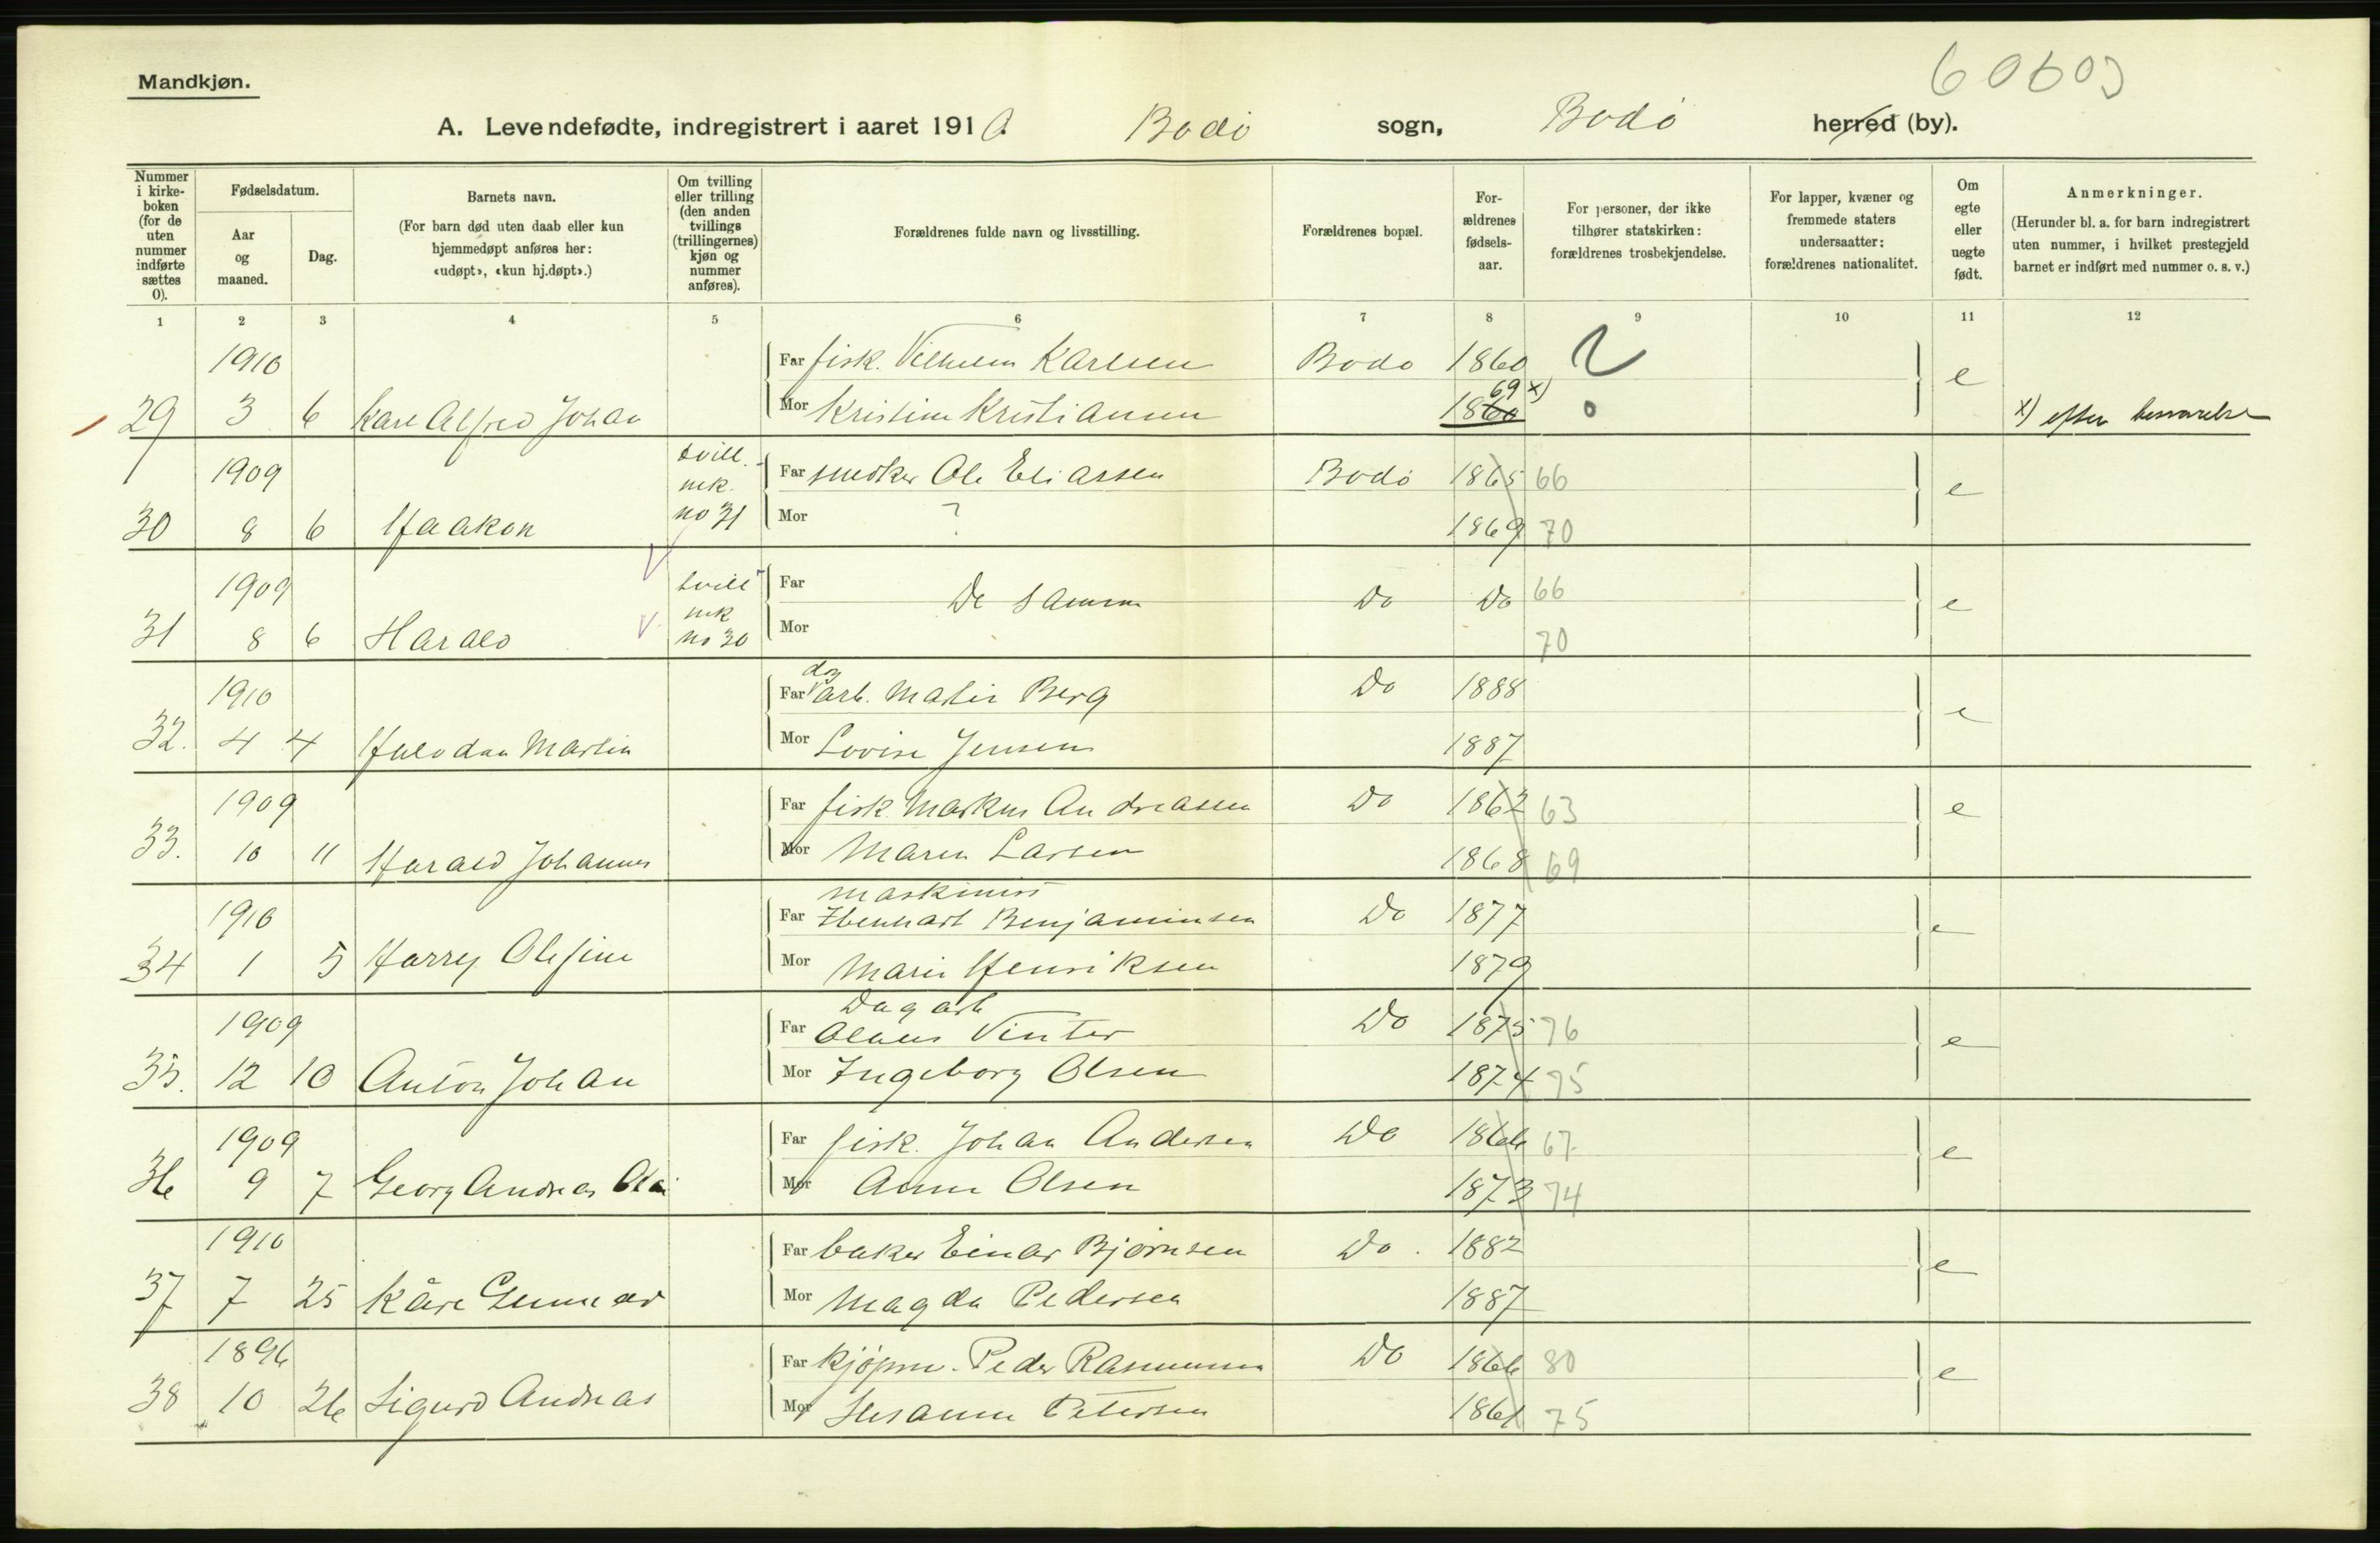 60603
Mandkjøn.
A. Levendefødte, indregistrert i aaret 1910. Bodø sogn, Bodø herred (by).
Nummer i kirke-boken (for de uten nummer indførte sættes 0).
Fødselsdatum.
Aar og maaned.
Dag.
Barnets navn.
(For barn død uten daab eller kun hjemmedøpt anføres her: «udøpt», «kun hj.døpt».)
Om tvilling eller trilling (den anden tvillings (trillingernes) kjøn og nummer anføres).
Forældrenes fulde navn og livsstilling.
Forældrenes bopæl.
For-ældrenes fødsels-aar.
For personer, der ikke tilhører statskirken: forældrenes trosbekjendelse.
For lapper, kvæner og fremmede staters undersaatter: forældrenes nationalitet.
Om egte eller uegte født.
Anmerkninger.
(Herunder bl. a. for barn indregistrert uten nummer, i hvilket prestegjeld barnet er indført med nummer o. s. v.)
1 2 3 4 5 6 7 8 9 10 11 12
1910 Far fisk. Vilhelm Karlsen Bodø 1860 e
29 3 6 Karl Alfred Johan Mor Kristine Kristiansen 1860 69 x) 0 x) efter besvarelse
1909 tvill. mk. no 31 Far snedker Ole Eliassen Bodø 1865 66 e
30 8 6 Haakon Mor ? 1869 70
1909 tvill mk no 30 Far De samme Do Do 66 e
31 8 6 Harald Mor 70
1910 Far dag arb. Martin Berg Do 1888 e
32. 4 4 Halvdan Martin Mor Lovise Jensen 1887
1909 Far fisk. Markus Andreassen Do 1862 63 e
33. 10 11 Harald Johannes Mor Maren Larsen 1868 69
maskinist
1910 Far Benjaminsen Do 1877 e
34 1 5 Harry Mor Marie Henriksen 1879
Dagarb
1909 Far Olaus Vinter Do 1875 76 e
35. 12 10 Anton Johan Mor Ingeborg Olsen 1874 75
1909 Far fisk. Johan Andersen Do 1866 67 e
36 9 7 Georg Andreas Olai Mor Anne Olsen 1873 74
1910 Far baker Einar Bjørnsen Do. 1882 e
37 7 25 Kåre Gunnar Mor Magda Pedersen 1887
1896 Far kjøpm. Peder Rasmussen Do 1866 80 e
38 10 26 Sigurd Andreas Mor Susanne Petersen 1861 75